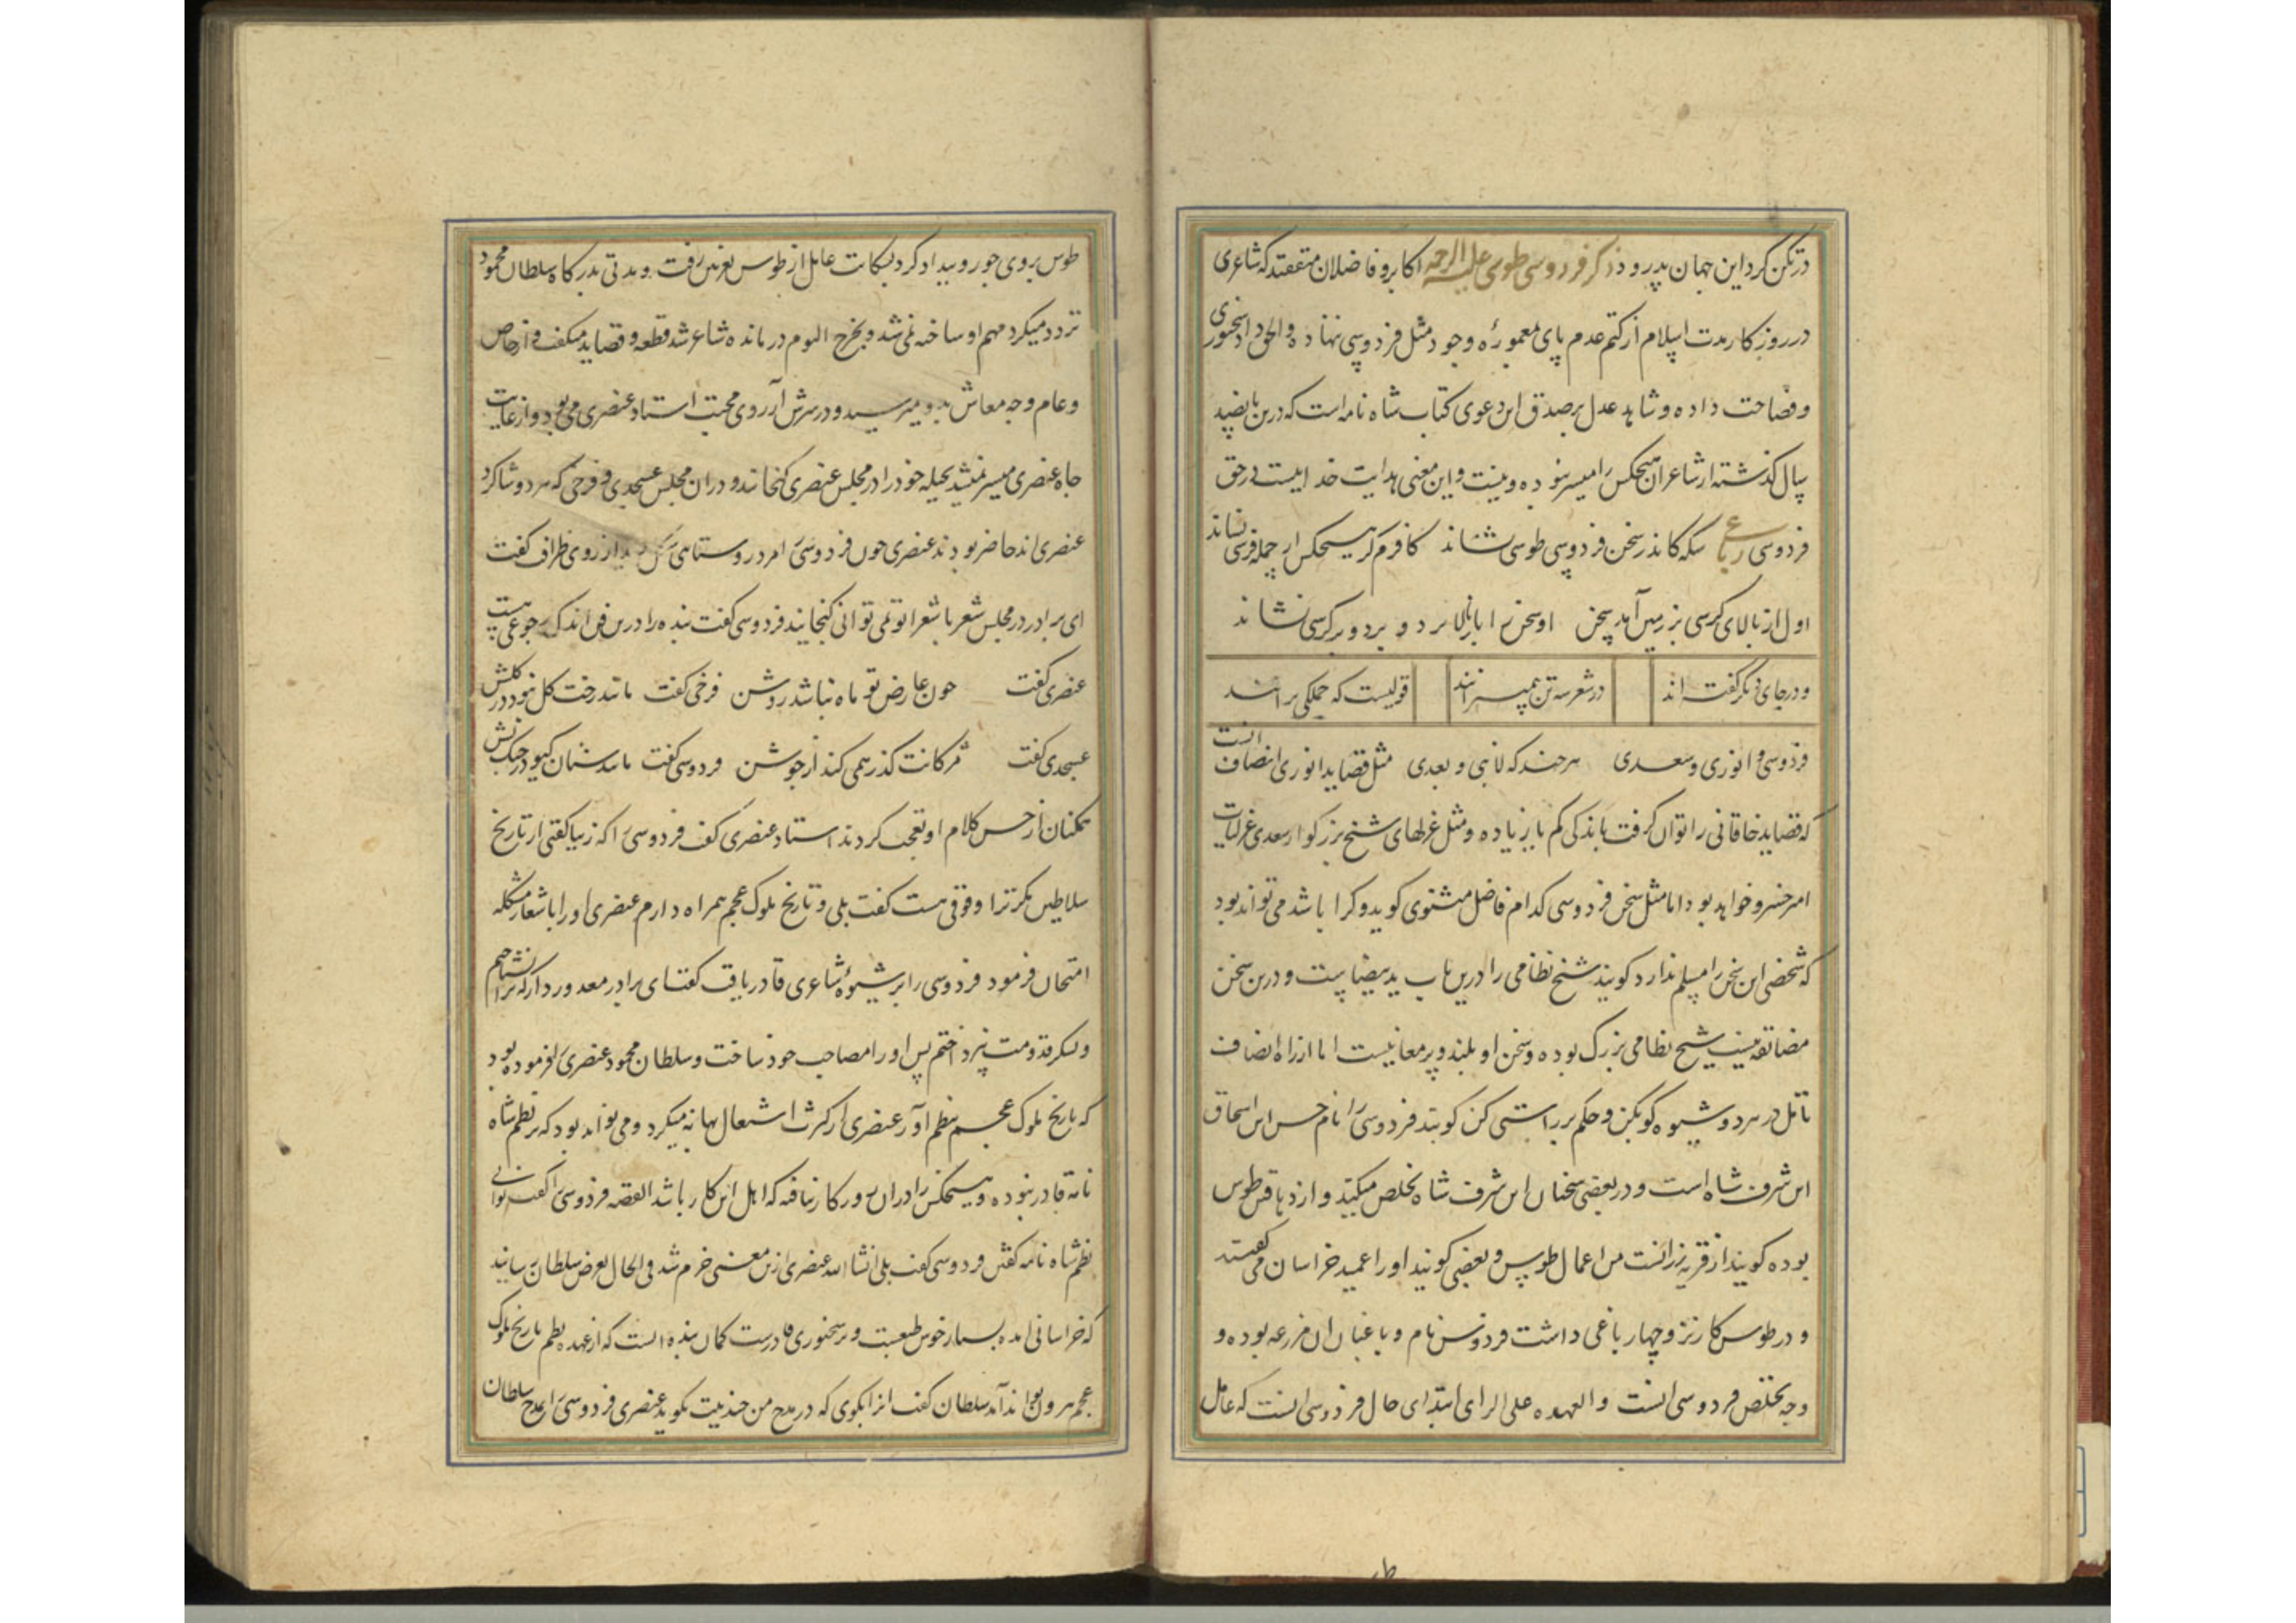 در تکن کرد این جهان پدرود ذکر فردوسی طوسی علیه الرحمه اکابر و فاضلان متفقند که شاعری
در روزکار مدت اسلام از کتم عدم پای بمعمورهٔ وجود مثل فردوسی ننهاده والحق داد سخنوری
و فصاحت داده و شاهد عدل بر صدق این دعوی کتاب شاه نامه است که درین پانصد
سال کذشته از شاعران هیچکس را میسر نبوده و نیست و این معنی هدایت خداییست در حق
فردوسی رباعی سکه کاندر سخن فردوسی طوسی نشاند کافرم کر هیچکس از جمله فرسی نشاند
اول از بالای کرسی بر زمین آمد سخن او سخن را باز بالا برد و بر کرسی نشاند
و در جای دیکر کفته اند در شعر سه تن پیمبرانند قولیست که جملکی برانند
فردوسی و انوری و سعدی هر چند که لا نبی و بعدی مثل قصاید انوری انصاف انست
که قصاید خاقانی را توان کرفت باندکی کم یا زیاده و مثل غزلهای شیخ بزرکوار سعدی غزلیات
امیر خسرو خواهد بود اما مثل سخن فردوسی کدام فاضل مثنوی کوید و کرا باشد می تواند بود
که شخصی این سخن را مسلم ندارد کویند شیخ نظامی را درین باب ید بیضاست و درین سخن
مضایقه نیست شیخ نظامی بزرک بوده و سخن او بلند و پر معانیست اما از راه انصاف
تامل در هر دو شیوه کو بکن و حکم بر راستی کن کویند فردوسی را نام حسن ابن اسحاق
ابن شرف شاه است و در بعضی سخنان ابن شرف شاه تخلص میکند و از دهاقین طوس
بوده کویند از قریه رزانست من اعمال طوس و بعضی کویند او را عمید خراسان می کفتند
و در طوس کاریز و چهار باغی داشت فردوس نام و باغبان ان مزرعه بوده و
وجه تخلص فردوسی انست والعهده علی الرای ابتدای حال فردوسی انست که عامل
طوس بروی جور و بیداد کرد بشکایت عامل از طوس بغزنین رفت و مدتی بدرکاه سلطان محمود
تردد میکرد مهم او ساخته نمی شد و بخرج الیوم درمانده شاعر شد قطعه و قصاید میکفت و از خاص
و عام وجه معاش بدو میرسید و در سرش آرزوی صحبت استاد عنصری می بود و از غایت
جاه عنصری میسر نمیشد بحیله خود را در مجلس عنصری کنجانند و دران مجلس عسجدی و فرخی که هر دو شاکرد
عنصری اند حاضر بودند عنصری چون فردوسی را مرد روستایی شکل دید از روی ظرافت کفت
ای برادر در مجلس شعر با شعرا تو نمی توانی کنجانید فردوسی کفت بنده را درین فن اندک رجوعی هست
عنصری کفت چون عارض تو ماه نباشد روشن فرخی کفت مانند رخت کل نبود در کلشن
عسجدی کفت مژکانت کذر همی کند از جوشن فردوسی کفت مانند سنان کیو در جنک پشن
همکنان از حسن کلام او تعجب کردند استاد عنصری کفت فردوسی را که زیبا کفتی از تاریخ
سلاطین مکر ترا وقوفی هست کفت بلی و تاریخ ملوک عجم همراه دارم عنصری او را با شعار مشکله
امتحان فرمود فردوسی را بر شیوهٔ شاعری قادر یافت کفت ای برادر معذور دار که ترا نشناختم
و شکر قدومت نپرداختم پس او را مصاحب خود ساخت و سلطان محمود عنصری را فرموده بود
که تاریخ ملوک عجم بنظم آور عنصری از کثرت اشتغال بهانه میکرد و می تواند بود که بر نظم شاه
نامه قادر نبوده و هیچکس را دران روزکار نیافته که اهل این کار باشد القصه فردوسی را کفت توانی
نظم شاه نامه کفتن فردوسی کفت بلی انشاالله عنصری ازین معنی خرم شد فی الحال بعرض سلطان رسانید
که خراسانی امده بسیار خوش طبعست و بر سخنوری قادرست کمان بنده انست که از عهده نظم تاریخ ملوک
عجم بیرون تواند آمد سلطان کفت او را بکوی که در مدح من چند بیت بکوید عنصری فردوسی را بمدح سلطان